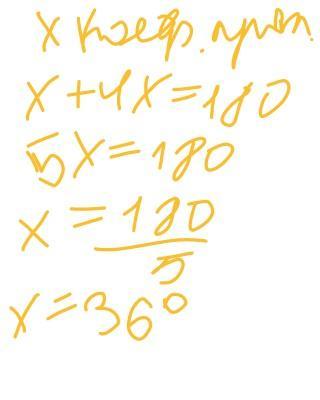 x коэф. проп.
x + 4x = 180
5x = 180
x = 180/5
x = 36°